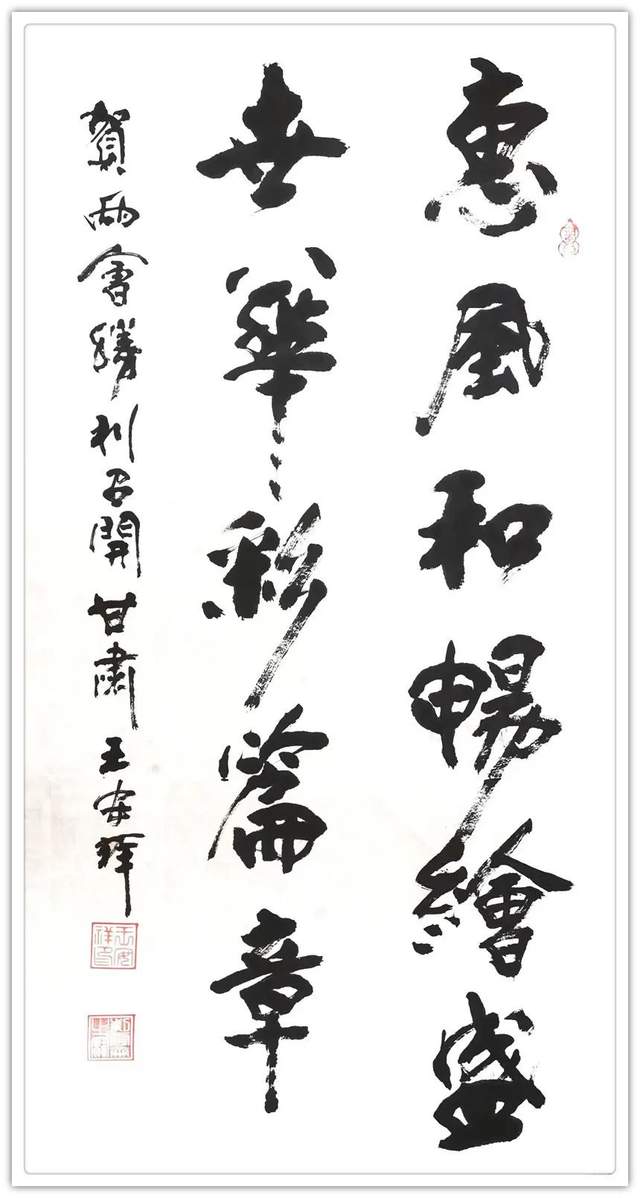 惠風和暢繪盛
世華彩篇章
賀兩會勝利召開 甘肅 王安祥
王安祥印